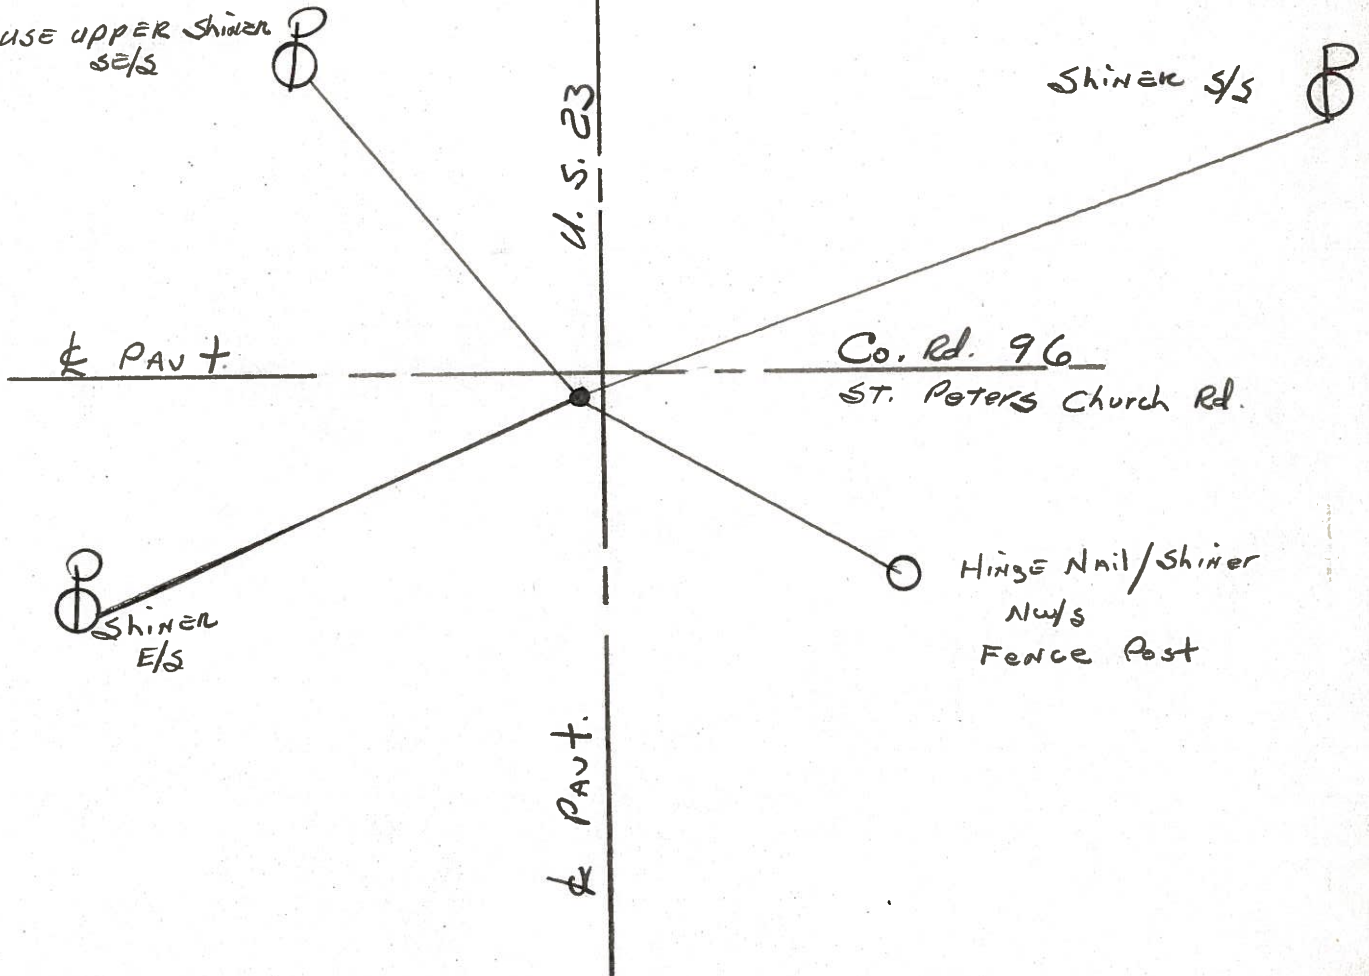 USE UPPER Shiner P
SE/S
Shiner S/S P
U.S. 23
℄ PAVt.
Co. Rd. 96
ST. Peters Church Rd.
P
Shiner
E/S
Hinge Nail/Shiner
NW/S
Fence Post
℄ PAVt.